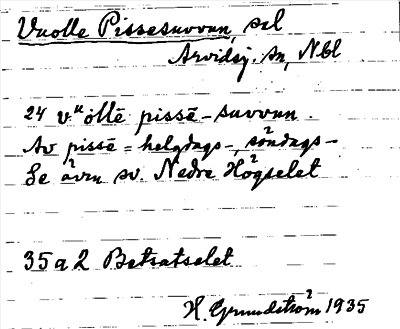 Vuolle Pissesuvvun, sel
Arvidsj. sn, Nbl
24 vᵘollē pissē-suvvun.
Av pissē = helgdags-, söndags-
Se även sv. Nedre Högselet
35 a 2 Betsatselet
H. Grundström 1935